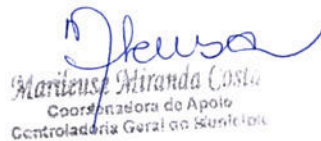 Marileuse Miranda Costa
Coordenadora de Apoio
Controladoria Geral do Município